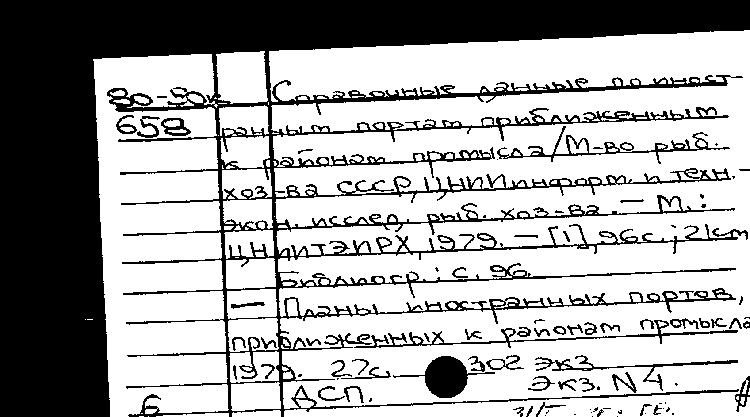 80-90к Справочные данные по иност-
658 ранным портам, приближенным
к районам промысла/М-во рыб.
хоз-ва СССР, ЦНИИинформ. и техн.-
экон. исслед. рыб. хоз-ва. – М.:
ЦНИИТЭИРХ, 1979. – [1], 96с.; 21см
Библиогр.: с. 96.
— Планы иностранных портов,
приближенных к районам промысла
1979. 27с. 302 экз
6 ДСП. Экз. N4.